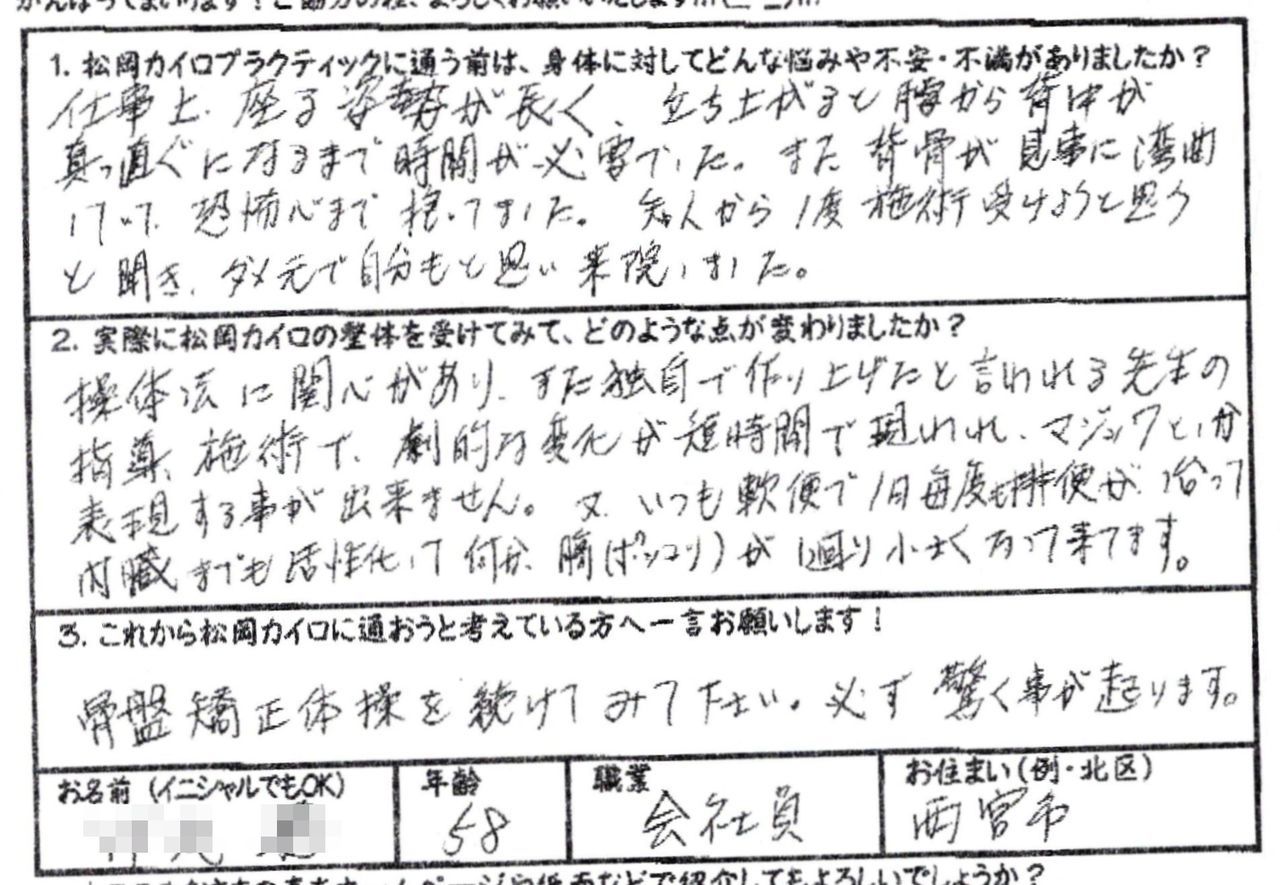 1. 松岡カイロプラクティックに通う前は、身体に対してどんな悩みや不安・不満がありましたか？
仕事上、座る姿勢が長く、立ち上がると腰から背中が
真っ直ぐになるまで時間が必要でした。また背骨が見事に湾曲
していて、恐怖心まで抱いてました。知人から1度施術受けようと思う
と聞き、ダメ元で自分もと思い来院しました。
2. 実際に松岡カイロの整体を受けてみて、どのような点が変わりましたか？
操体法に関心があり、また独自で作り上げたと言われる先生の
指導、施術で、劇的な変化が短時間で現われれ、マジックとしか
表現する事が出来ません。又、いつも軟便で1日毎度も排便が、治って
内臓までも活性化して何か、腹(ポッコリ)が1廻り小さくなって来てます。
3. これから松岡カイロに通おうと考えている方へ一言お願いします！
骨盤矯正体操を続けてみて下さい。必ず驚く事が起ります。
お名前（イニシャルでもOK） 年齢 職業 お住まい（例・北区）
58 会社員 西宮市
ページや紙面などで紹介してもよろしいでしょうか？